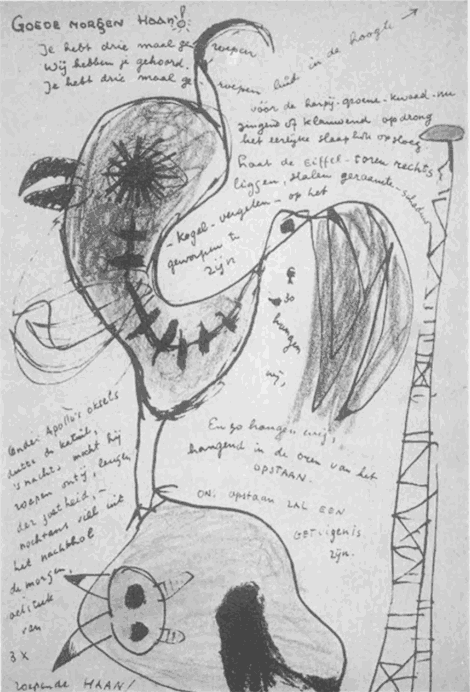 GOEDE MORGEN HAAN!
Je hebt drie maal ge roepen
Wij hebben je gehoord.
Je hebt drie maal ge roepen luid in de hoogte
vóór de harpij-groene-kwaad-nu
zingend of klauwend opdrong
het eerlijke slaaphok opsloeg
Laat de Eiffel-toren rechts
liggen, stalen geraamte-schaduw
-kogel-vergeten-op het
geworpen te
zijn
€
zo
hangen
wij,
En zo hangen wij,
hangend in de oren van het
OPSTAAN.
ON. opstaan ZAL EEN
GETUIGENIS
zijn.
onder Apollo's oksels
de katuil,
's nachts mocht hij
roepen
der zotheid, -
nochtans viel uit
het nachthol
de morgen,
van
3 X
roepende HAAN!